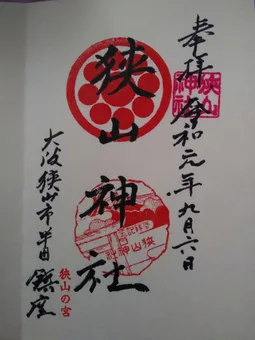 奉拝
狭山神社
令和元年九月六日
狭山神社
大阪狭山市半田 鎮座
狭山の宮